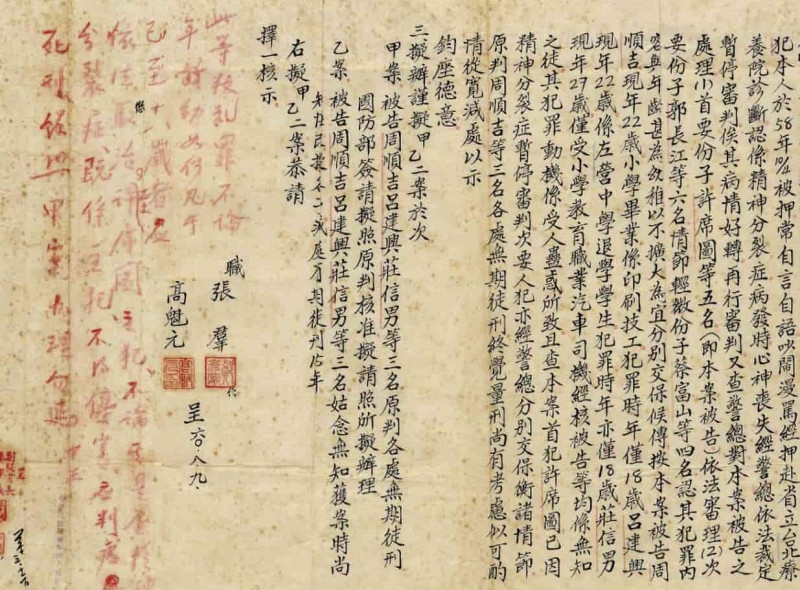 犯本人於58年10/2被押常自言自語吵鬧漫罵經押赴省立台北療
養院診斷認係精神分裂症病發時心神喪失經警總依法裁定
暫停審判俟其病情好轉再行審判又查警總對本案被告之
處理(1)首要份子許席圖等五名(即本案被告)依法審理(2)次
要份子郭長江等六名情節輕微份子蔡富山等四名認其犯罪內
容與年齡甚為幼稚以不擴大為宜分別交保候傳按本案被告周
順吉現年22歲小學畢業係印刷技工犯罪時年僅18歲呂建興
現年22歲係左營中學退學學生犯罪時年亦僅18歲莊信男
現年27歲僅受小學教育職業汽車司機經核被告等均係無知
之徒其犯罪動機係受人蠱惑所致且查本案首犯許席圖已因
精神分裂症暫停審判次要人犯亦經警總分別交保衡諸情節
原判周順吉等三名各處無期徒刑終覺量刑尚有考慮似可酌
情從寬減處以示
鈞座德意
三擬辦謹擬甲乙二案於次
甲案 被告周順吉呂建興莊信男等三名原判各處無期徒刑
國防部簽請擬照原判核准擬請照所擬辦理
乙案 被告周順吉呂建興莊信男等三名姑念無知獲案時尚
右擬甲乙二案恭請
擇一核示
職 張羣
高魁元
呈 六〇.八.九.
此等叛亂罪不論
年齡幼如何凡年
已至十八歲者應
依法懲治
分裂症既係主犯
死刑餘照甲案辦理可也